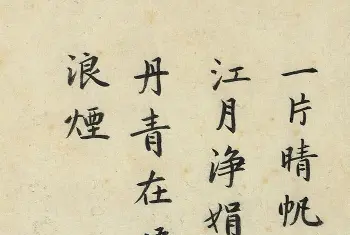 一片晴帆
江月净娟
丹青在
浪煙